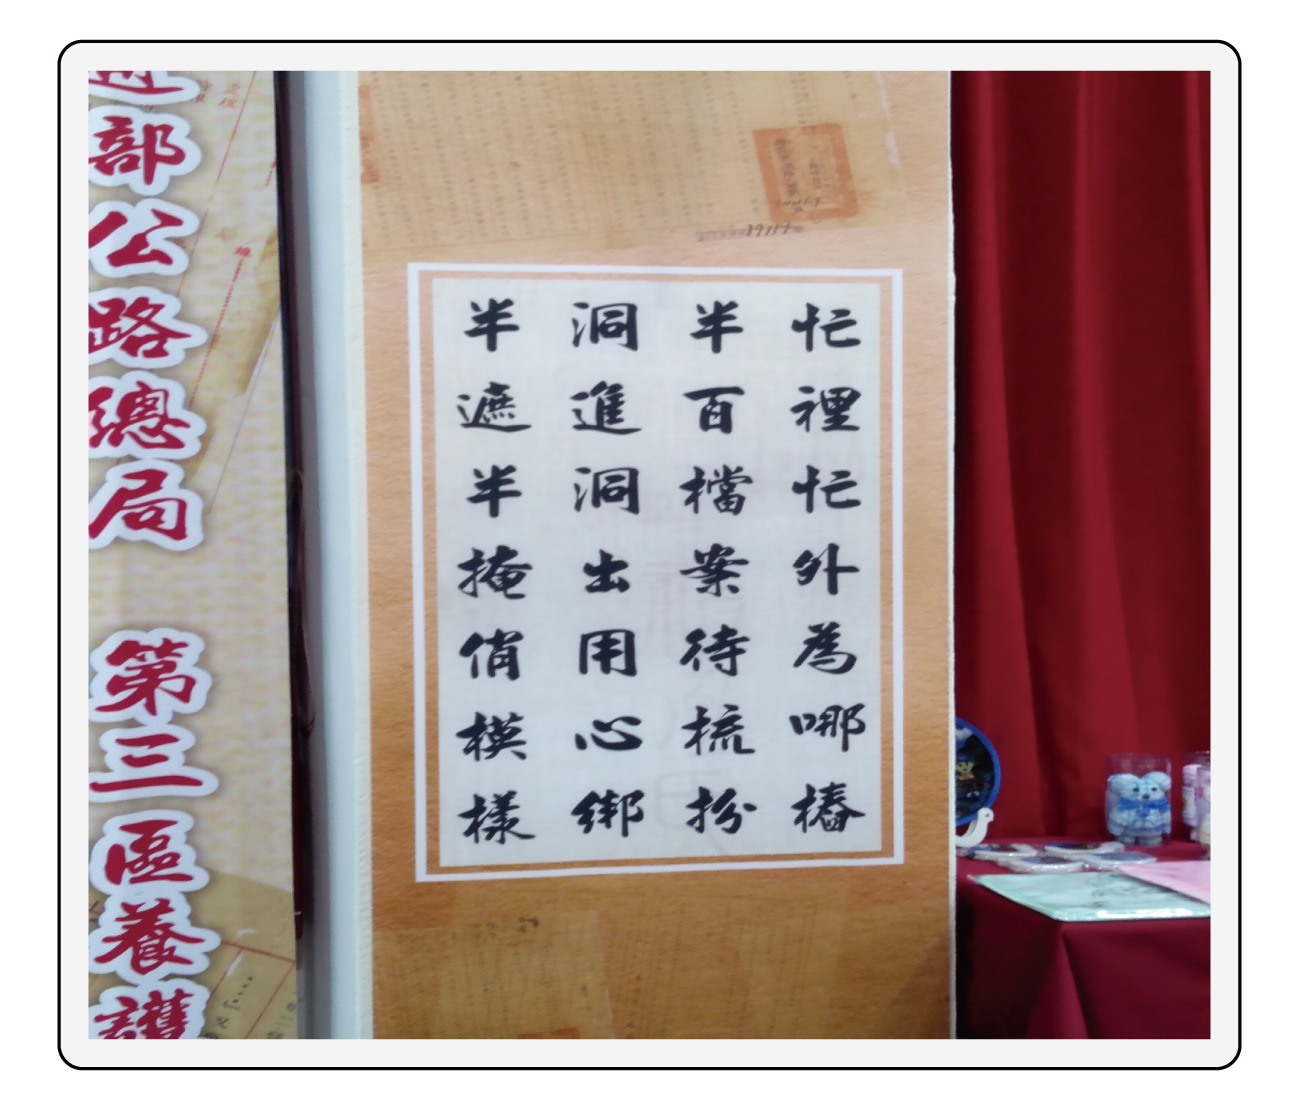 忙裡忙外為哪樁
半百檔案待梳扮
洞進洞出用心綁
半遮半掩俏模樣
部公路總局 第三區養護